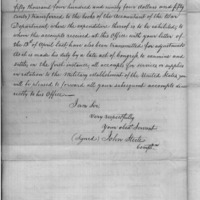 fifty thousand four hundred and ninety four dollars and fifty
Cents) transferred to the books of the Accountant of the War
Department, where the expenditure thereof is to be exhibited; to
whom the accompts received at this Office with your letter of
the 13th of April last, have also been transmitted for adjustments
Which he made his duty by a late act of Congress to examine and
settle, in the first instance, all accompts for services or supplies
in relation to the Military establishment of the United States you
will be pleased to forward all your subsequent accompts di-
rectly to his Office.
I am Sir
Very respectfully
Your obdt. Servant
(Signed) John
Compt.